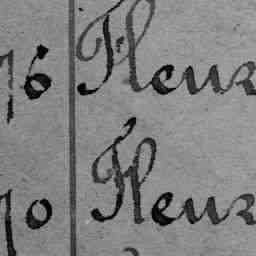 76 Fleur
70 Fleur